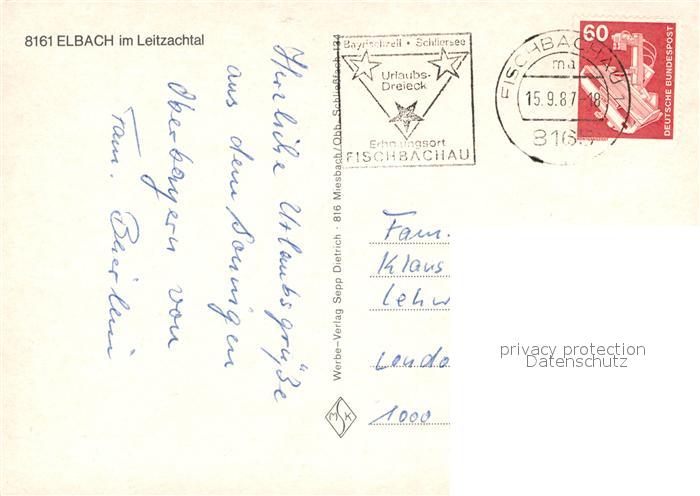 8161 ELBACH im Leitzachtal
Herzliche Urlaubsgrüße
aus dem sonnigen
Oberbayern von
Fam.
Werbe-Verlag Sepp Dietrich · 816 Miesbach/Obb. Schließfach 134
MSK
Bayrischzell · Schliersee
Urlaubs-
Dreieck
Erholungsort
FISCHBACHAU
FISCHBACHAU 1
ma
15.9.87-18
8165
60
DEUTSCHE BUNDESPOST
Fam.
Klaus
Lehw
Londo
1000
privacy protection
Datenschutz